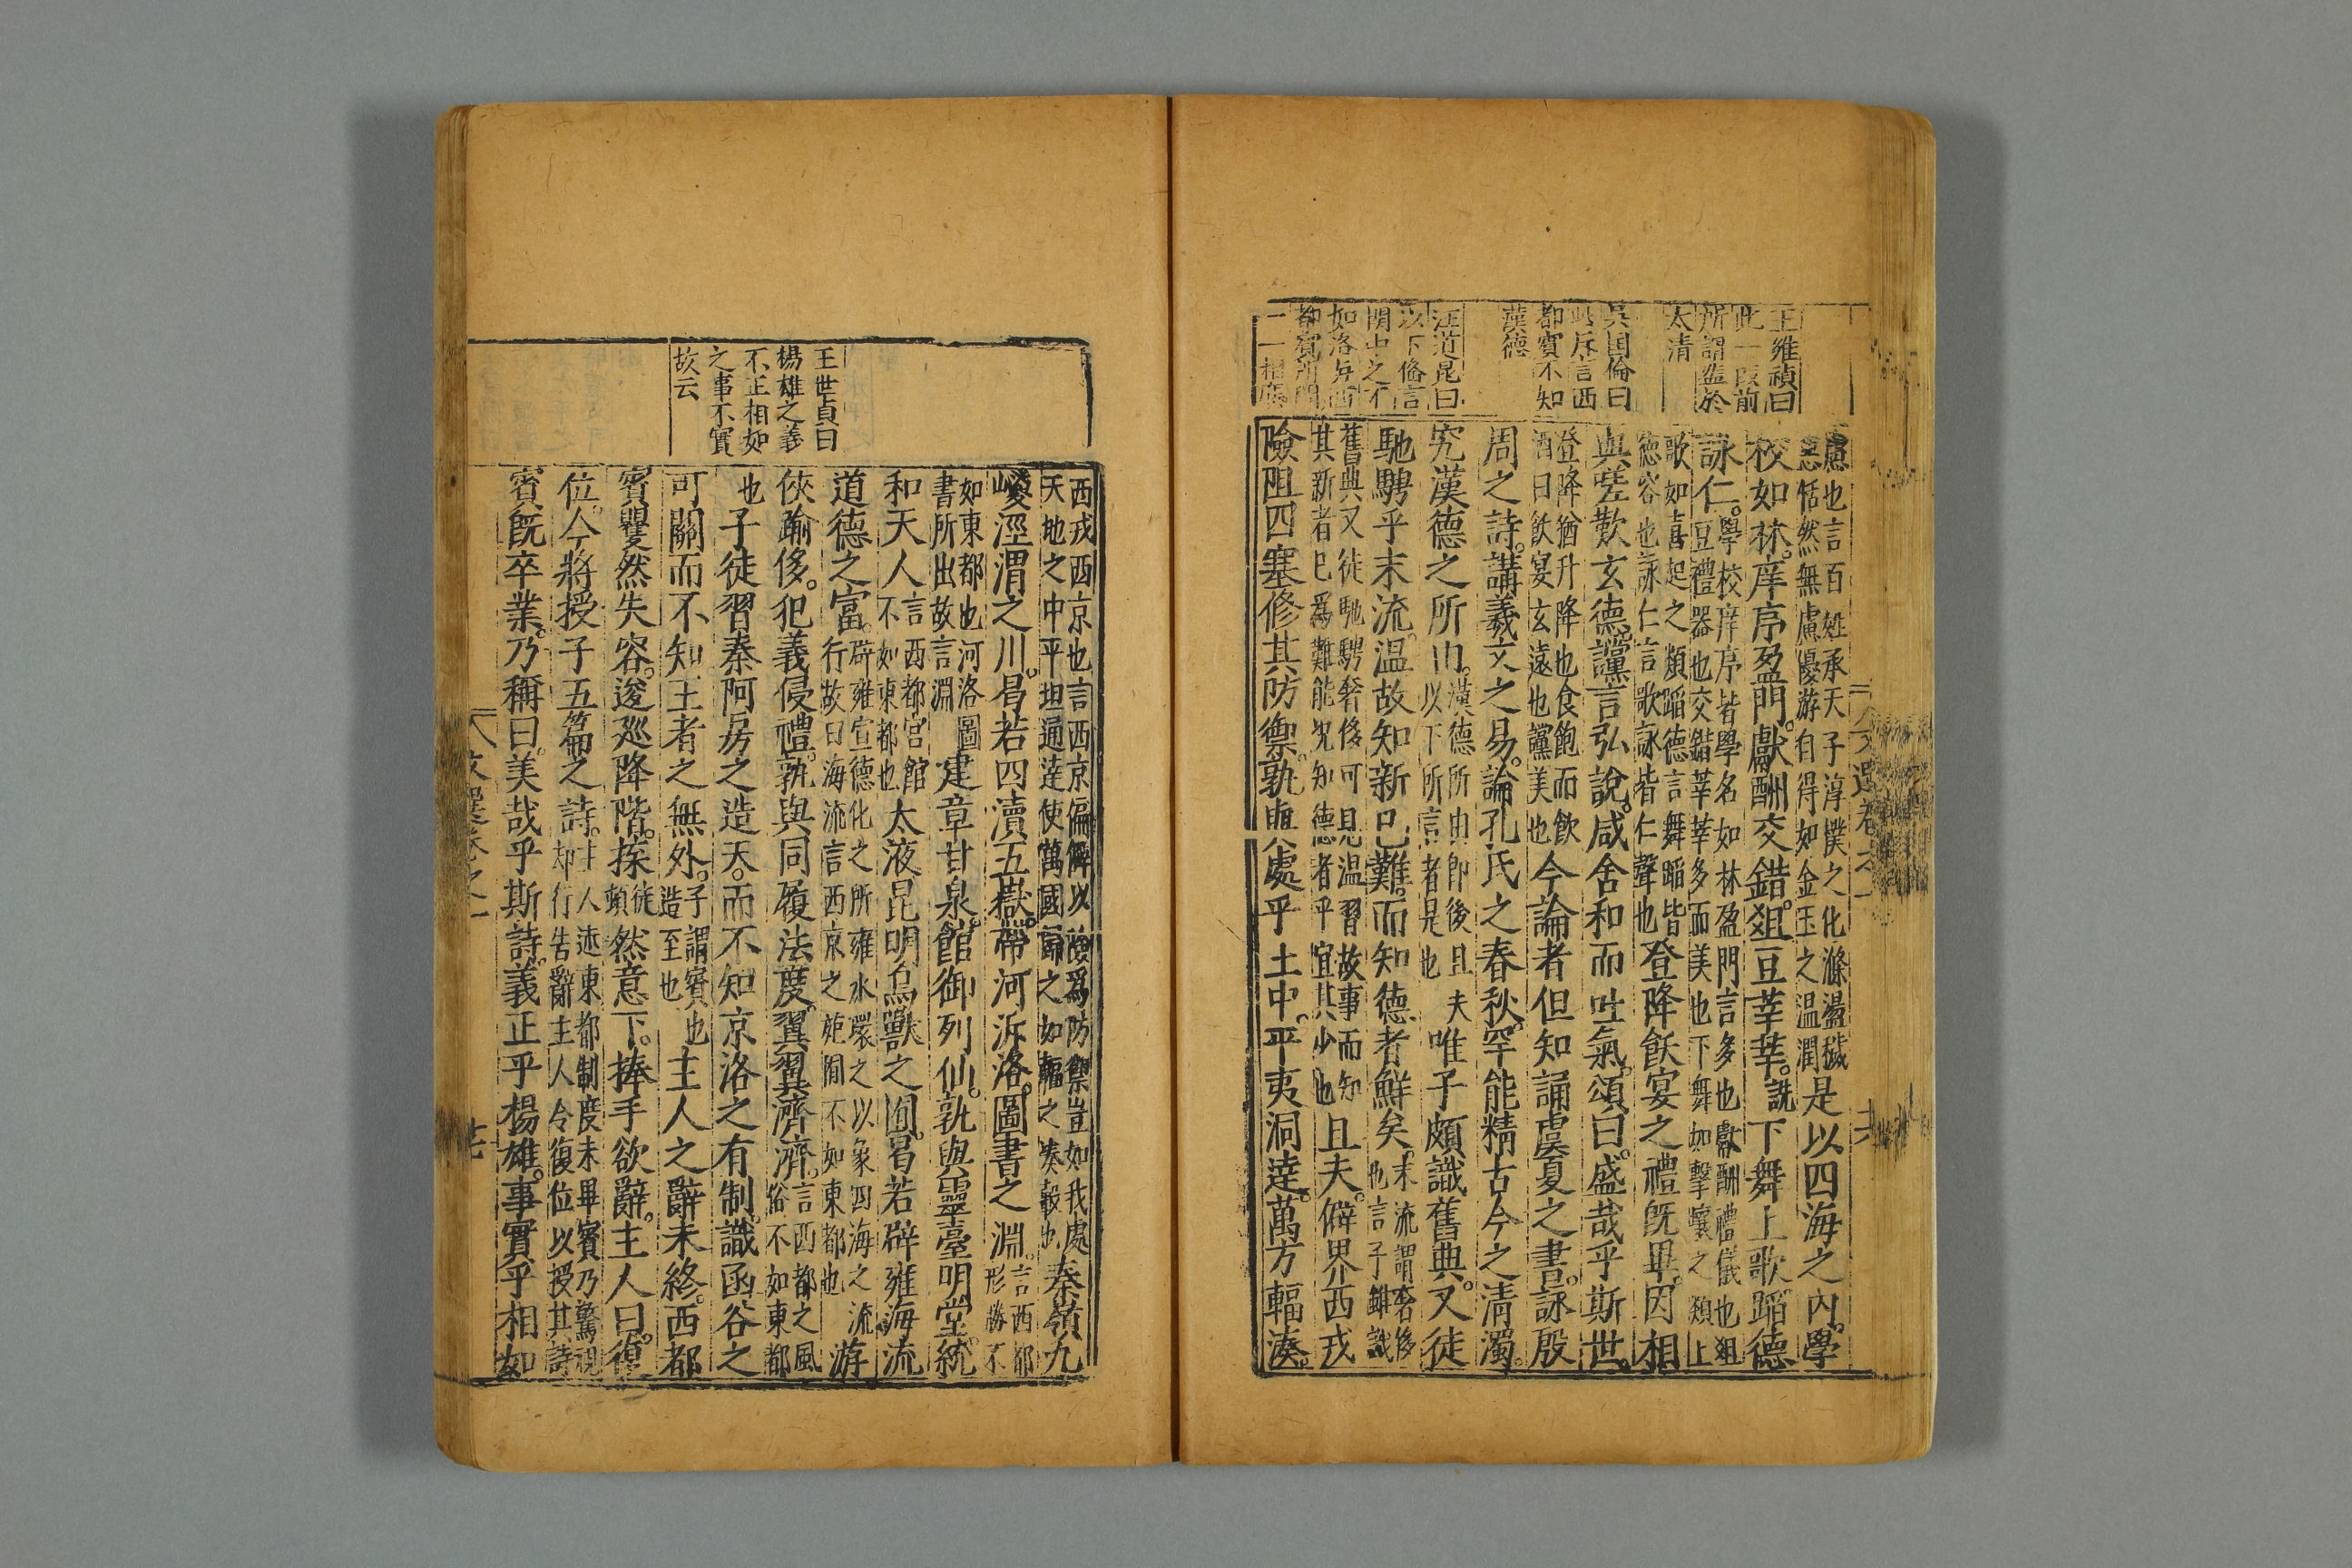 王維禎曰
此一段前
所謂監於
太清
吳国倫曰
此斥言西
都賓不知
漢德
汪道昆曰
以下俻言
関中之不
如洛与西
都賓所問
一一相應
慮也言百姓承天子淳樸之化滌盪穢
悪恬然無慮優游自得如金玉之温潤是以四海之内。學
校如林。庠序盈門。獻酬交錯。爼豆莘莘。詵下舞上歌蹈德
詠仁。學校庠序皆學名如林盈門言多也獻酬禮儀也爼
豆禮器也交錯莘莘多而美也下舞如擊壤之類上
歌如喜起之類蹈德言舞蹈皆
德容也詠仁言歌詠皆仁聲也登降飫宴之禮旣畢。因相
與嗟歎玄德讜言弘說。咸舍和而吐氣。頌曰。盛哉乎斯世。
登降猶升降也食飽而飲
酒曰飫宴玄遠也讜美也今論者但知誦虞夏之書。詠殷
周之詩。講羲文之易。論孔氏之春秋。罕能精古今之淸濁。
究漢德之所由。漢德所由即後且夫
以下所言者是也唯子頗識舊典。又徒
馳騁乎末流。温故知新已難。而知德者鮮矣。末流謂奢侈
也言子雖識
舊典又徒馳騁奢侈可見温習故事而知
其新者已爲難能况知德者乎宜其少也且夫。僻界西戎
險阻四塞修其防禦。孰與處乎土中。平夷洞達。萬方輻湊。
文選卷之一
王世貞曰
楊雄之義
不正相如
之事不實
故云
西戎西京也言西京偏僻以險爲防禦豈如我處
天地之中平坦通達使萬國歸之如輻之湊轂也秦嶺九
嵕涇渭之川。曷若四瀆五嶽。帶河泝洛。圖書之淵。言西都
形勝不
如東都也河洛圖
書所出故言淵建章甘泉。館御列仙。孰與靈臺明堂。統
和天人言西都宮館
不如東都也太液昆明鳥獸之囿。曷若辟雍海流
道德之富。辟雍宣德化之所雍水環之以象四海之流
行故曰海流言西京之苑囿不如東都也游
俠踰侈。犯義侵禮。孰與同履法度。翼翼濟濟。言西都之風
俗不如東都
也子徒習秦阿房之造天。而不知京洛之有制。識函谷之
可關而不知王者之無外。子謂賓也
造至也主人之辭未終。西都
賓矍然失容。逡廵降階。㨂徒
頰然意下。捧手欲辭。主人曰。復
位。今將授子五篇之詩。主人述東都制度未畢賓乃驚視
却行告辭主人令復位以授其詩
賓旣卒業。乃稱曰。美哉乎斯詩。義正乎楊雄。事實乎相如
文選卷之一